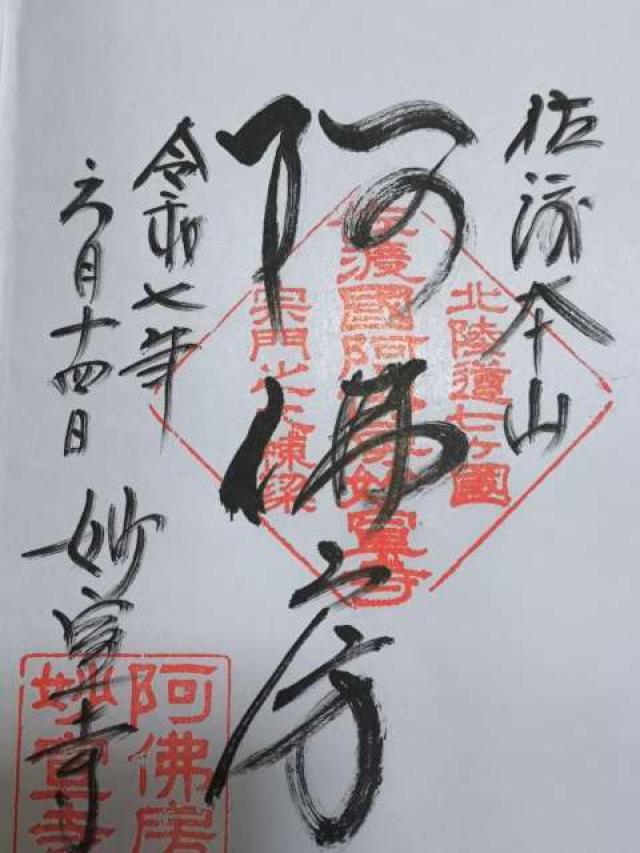 佐渡本山
阿佛房
令和七年
六月十四日
妙宣寺
北陸道七ヶ國
佐渡國阿佛房妙宣寺
宗門之大棟梁
阿佛房
妙宣寺